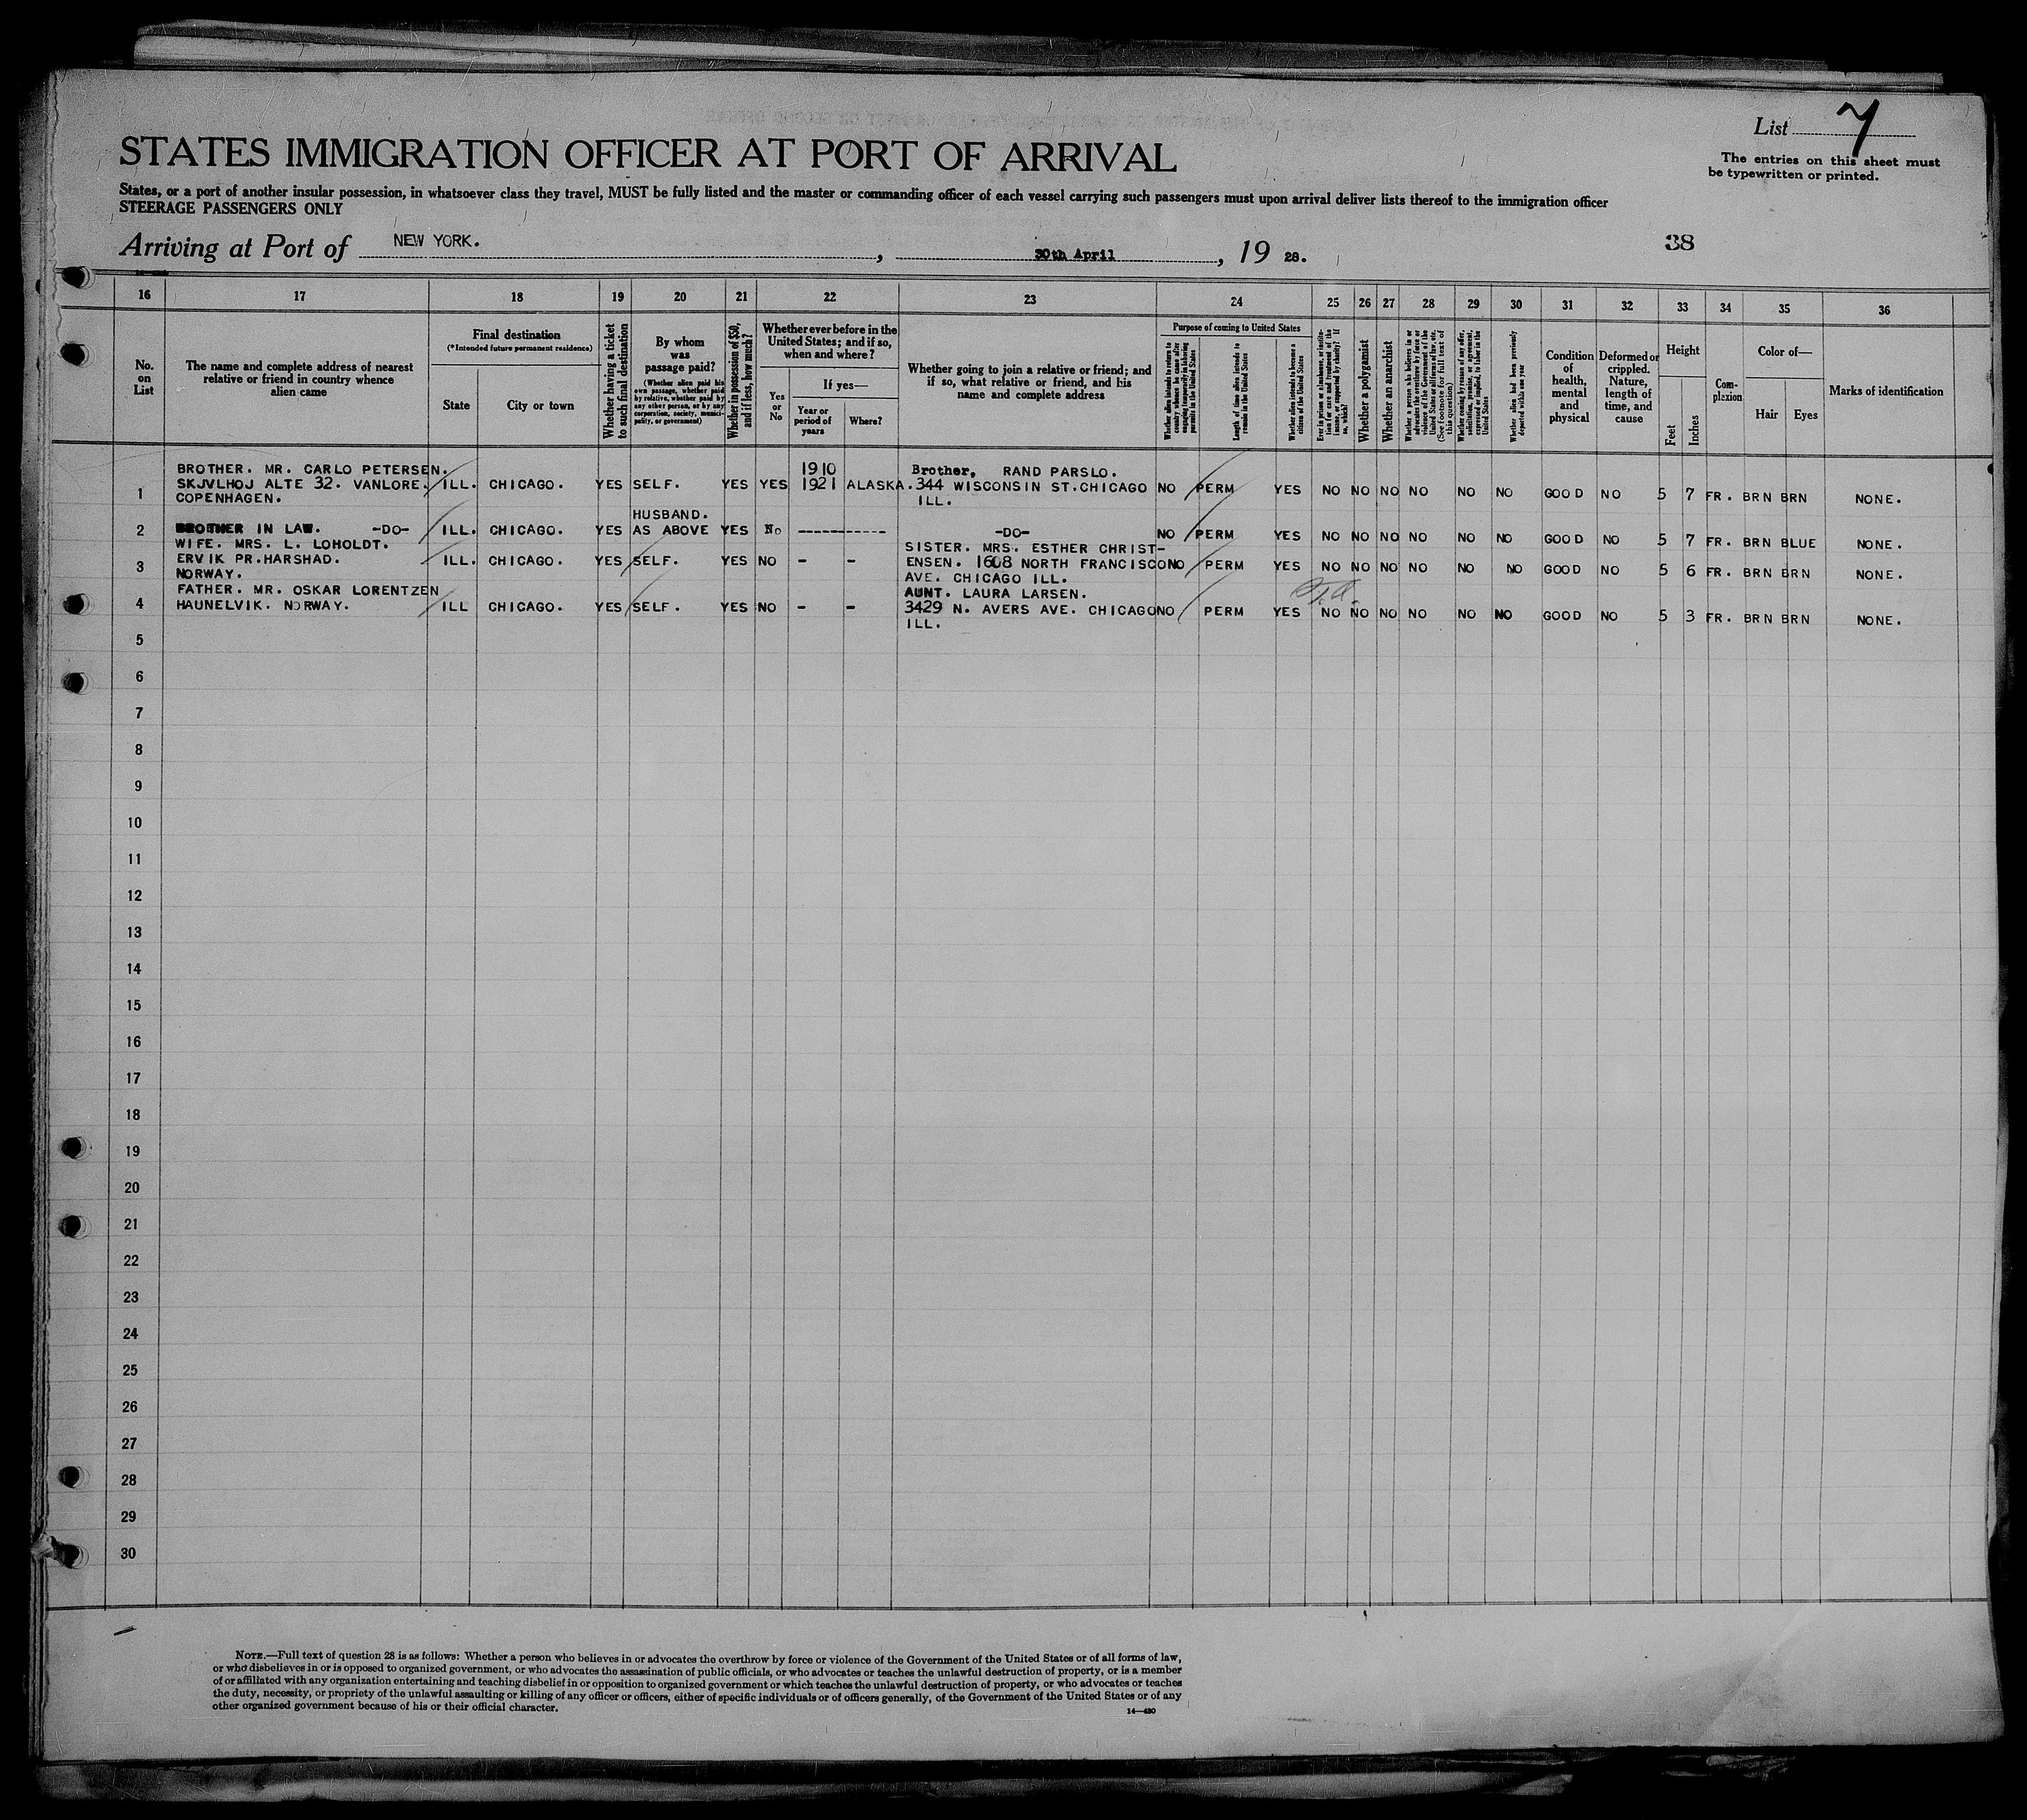 List 7
The entries on this sheet must
be typewritten or printed.
STATES IMMIGRATION OFFICER AT PORT OF ARRIVAL
States, or a port of another insular possession, in whatsoever class they travel, MUST be fully listed and the master or commanding officer of each vessel carrying such passengers must upon arrival deliver lists thereof to the immigration officer
STEERAGE PASSENGERS ONLY
Arriving at Port of NEW YORK. , 30th April , 19 28.
38
16 17 18 19 20 21 22 23 24 25 26 27 28 29 30 31 32 33 34 35 36
No.
on
List
The name and complete address of nearest
relative or friend in country whence
alien came
Final destination
(*Intended future permanent residence)
State
City or town
Whether having a ticket
to such final destination
By whom
was
passage paid?
(Whether alien paid his
own passage, whether paid
by relative, whether paid by
any other person, or by any
corporation, society, munici-
pality, or government)
Whether in possession of $50,
and if less, how much?
Whether ever before in the
United States; and if so,
when and where?
Yes
or
No
If yes—
Year or
period of
years
Where?
Whether going to join a relative or friend; and
if so, what relative or friend, and his
name and complete address
Purpose of coming to United States
Whether alien intends to return to
country whence he came after
engaging temporarily in laboring
pursuits in the United States
Length of time alien intends to
remain in the United States
Whether alien intends to become a
citizen of the United States
Ever in prison or almshouse, or institu-
tion for care and treatment of the
insane, or supported by charity? If
so, which?
Whether a polygamist
Whether an anarchist
Whether a person who believes in or
advocates the overthrow by force or
violence of the Government of the
United States or all forms of law, etc.
(See footnote for full text of
this question)
Whether coming by reason of any offer,
solicitation, promise, or agreement,
expressed or implied, to labor in the
United States
Whether alien had been previously
deported within one year
Condition
of
health,
mental
and
physical
Deformed or
crippled.
Nature,
length of
time, and
cause
Height
Feet
Inches
Com-
plexion
Color of—
Hair
Eyes
Marks of identification
BROTHER. MR. CARLO PETERSEN. 1910 Brother, RAND PARSLO.
1 SKJVLHOJ ALTE 32. VANLORE. ILL. CHICAGO. YES SELF. YES YES 1921 ALASKA. 344 WISCONSIN ST.CHICAGO NO PERM YES NO NO NO NO NO NO GOOD NO 5 7 FR. BRN BRN NONE.
COPENHAGEN. ILL.
HUSBAND.
2 BROTHER IN LAW. -DO- ILL. CHICAGO. YES AS ABOVE YES No ----------- -DO- NO PERM YES NO NO NO NO NO NO GOOD NO 5 7 FR. BRN BLUE NONE.
WIFE. MRS. L. LOHOLDT. SISTER. MRS. ESTHER CHRIST-
3 ERVIK PR.HARSHAD. ILL. CHICAGO. YES SELF. YES NO - - ENSEN. 1608 NORTH FRANCISCO NO PERM YES NO NO NO NO NO NO GOOD NO 5 6 FR. BRN BRN NONE.
NORWAY. AVE. CHICAGO ILL.
FATHER. MR. OSKAR LORENTZEN AUNT. LAURA LARSEN.
4 HAUNELVIK. NORWAY. ILL CHICAGO. YES SELF. YES NO - - 3429 N. AVERS AVE. CHICAGO NO PERM YES NO NO NO NO NO NO GOOD NO 5 3 FR. BRN BRN NONE.
ILL.
5
6
7
8
9
10
11
12
13
14
15
16
17
18
19
20
21
22
23
24
25
26
27
28
29
30
NOTE.—Full text of question 28 is as follows: Whether a person who believes in or advocates the overthrow by force or violence of the Government of the United States or of all forms of law,
or who disbelieves in or is opposed to organized government, or who advocates the assassination of public officials, or who advocates or teaches the unlawful destruction of property, or is a member
of or affiliated with any organization entertaining and teaching disbelief in or opposition to organized government or which teaches the unlawful destruction of property, or who advocates or teaches
the duty, necessity, or propriety of the unlawful assaulting or killing of any officer or officers, either of specific individuals or of officers generally, of the Government of the United States or of any
other organized government because of his or their official character.
14—430